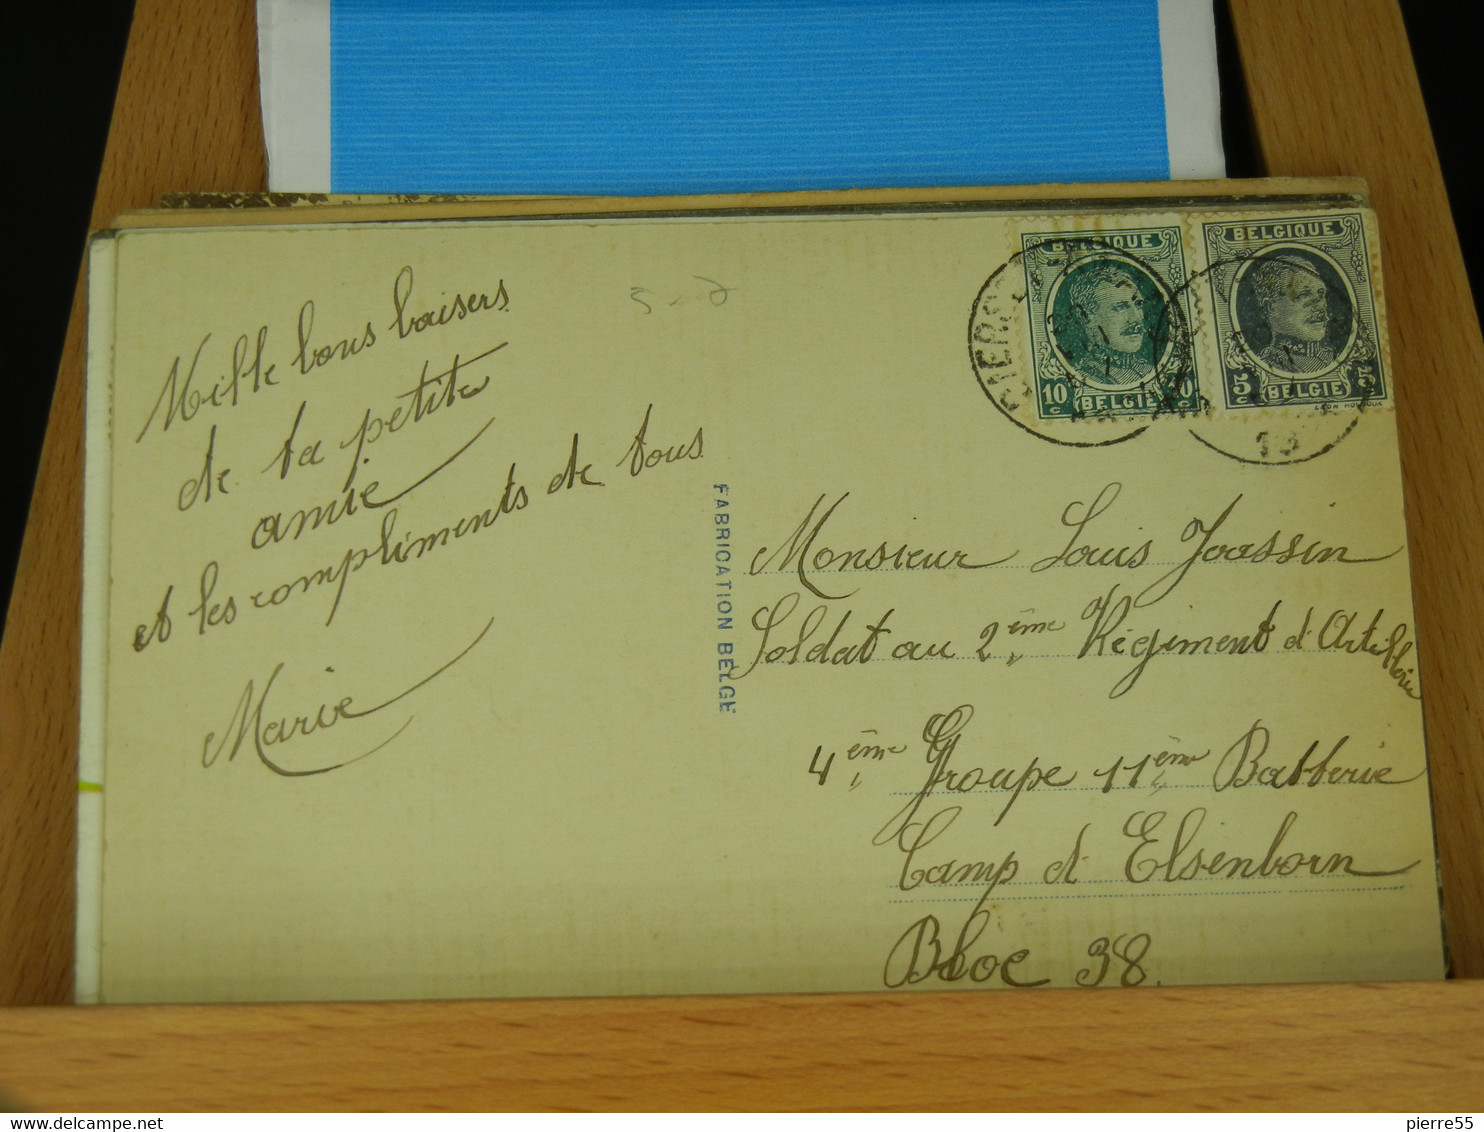 Mille bons baisers
de ta petite
amie
et les compliments de tous
Marie
FABRICATION BELGE
BELGIQUE
10c
BELGIE
BELGIQUE
5c 5c
BELGIE
13
Monsieur Louis Joassin
Soldat au 2ème Régiment d'Artillerie
4ème Groupe 11ème Batterie
Camp d'Elsenborn
Bloc 38.
delcampe.net
pierre55